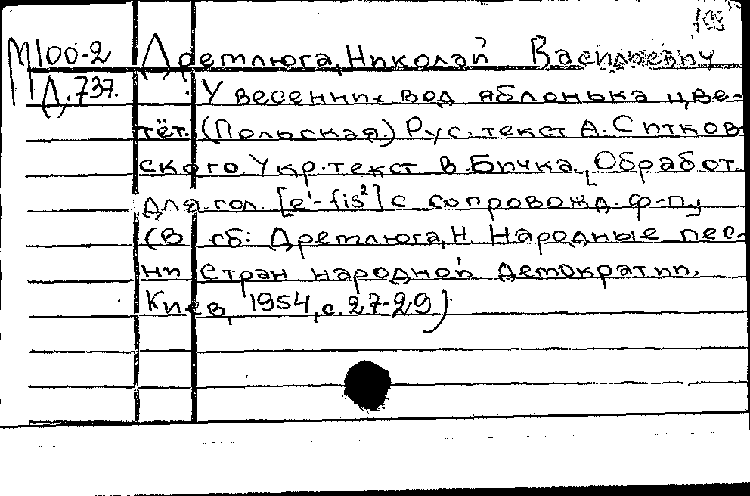 103
М100-2 Дретлюга, Николай Васильевич
Д.737. У весенних вод яблонька цве-
тёт. (Польская.) Рус. текст А. Ситков-
ского. Укр. текст В. Бичка. [Обработ.
для гол. [e¹-fis²] с сопровожд. ф-п.,
(В сб: Дретлюга, Н. Народные пес-
ни стран народной демократии.
Киев, 1954, с. 27-29)